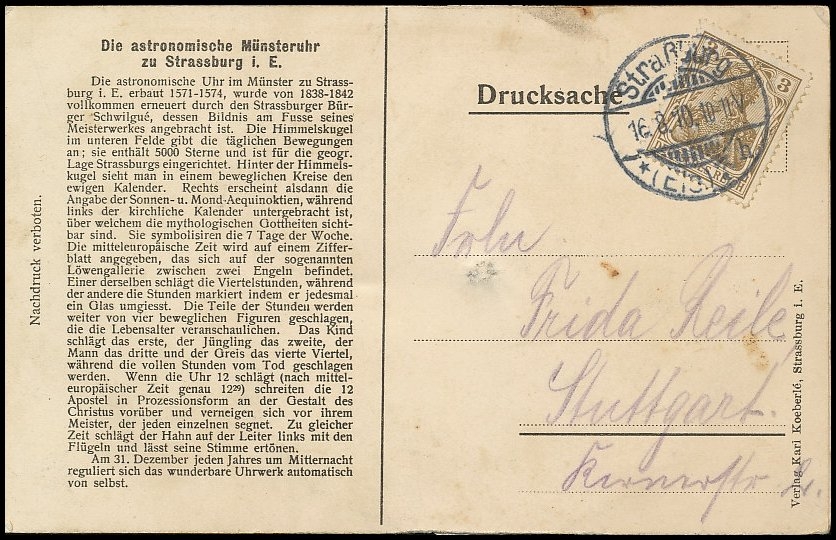 Die astronomische Münsteruhr
zu Strassburg i. E.
Die astronomische Uhr im Münster zu Strass-
burg i. E. erbaut 1571-1574, wurde von 1838-1842
vollkommen erneuert durch den Strassburger Bür-
ger Schwilgué, dessen Bildnis am Fusse seines
Meisterwerkes angebracht ist. Die Himmelskugel
im unteren Felde gibt die täglichen Bewegungen
an; sie enthält 5000 Sterne und ist für die geogr.
Lage Strassburgs eingerichtet. Hinter der Himmels-
kugel sieht man in einem beweglichen Kreise den
ewigen Kalender. Rechts erscheint alsdann die
Angabe der Sonnen- u. Mond-Aequinoktien, während
links der kirchliche Kalender untergebracht ist,
über welchem die mythologischen Gottheiten sicht-
bar sind. Sie symbolisiren die 7 Tage der Woche.
Die mitteleuropäische Zeit wird auf einem Ziffer-
blatt angegeben, das sich auf der sogenannten
Löwengallerie zwischen zwei Engeln befindet.
Einer derselben schlägt die Viertelstunden, während
der andere die Stunden markiert indem er jedesmal
ein Glas umgiesst. Die Teile der Stunden werden
weiter von vier beweglichen Figuren geschlagen,
die die Lebensalter veranschaulichen. Das Kind
schlägt das erste, der Jüngling das zweite, der
Mann das dritte und der Greis das vierte Viertel,
während die vollen Stunden vom Tod geschlagen
werden. Wenn die Uhr 12 schlägt (nach mittel-
europäischer Zeit genau 12²⁹) schreiten die 12
Apostel in Prozessionsform an der Gestalt des
Christus vorüber und verneigen sich vor ihrem
Meister, der jeden einzelnen segnet. Zu gleicher
Zeit schlägt der Hahn auf der Leiter links mit den
Flügeln und lässt seine Stimme ertönen.
Am 31. Dezember jeden Jahres um Mitternacht
reguliert sich das wunderbare Uhrwerk automatisch
von selbst.
Nachdruck verboten.
Drucksache
Straßburg
16.8.10.10-11.V.
* (Els.)
3
Frln
Frida Reile
Stuttgart.
Kernerstr
Verlag Karl Koeberlé, Strassburg i. E.